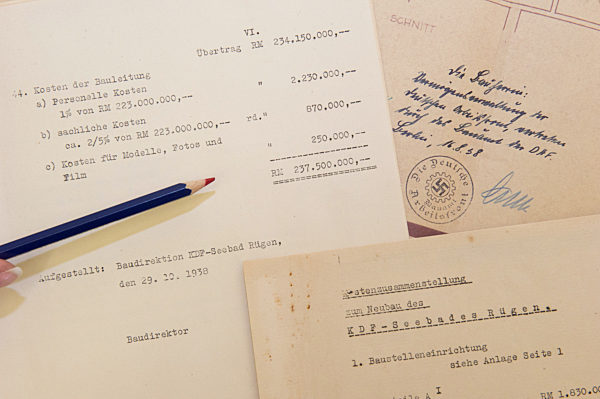 VI.
Übertrag RM 234.150.000,--
44. Kosten der Bauleitung
a) Personelle Kosten
1% von RM 223.000.000,-- " 2.230.000,--
b) sachliche Kosten
ca. 2/5% von RM 223.000.000,-- rd." 870.000,--
c) Kosten für Modelle, Fotos und
Film " 250.000,--
RM 237.500.000,--
Aufgestellt: Baudirektion KDF-Seebad Rügen,
den 29. 10. 1938
Baudirektor
SCHNITT
Die Bauherrin:
Vermögensverwaltung der
deutschen Arbeitsfront, vertreten
durch das Bauamt der DAF.
Berlin, 16.8.38
Die Deutsche
Arbeitsfront
Bauamt
Kostenzusammenstellung
zum Neubau des
KDF-Seebades Rügen.
1. Baustelleneinrichtung
siehe Anlage Seite 1
A I RM 1.830.00